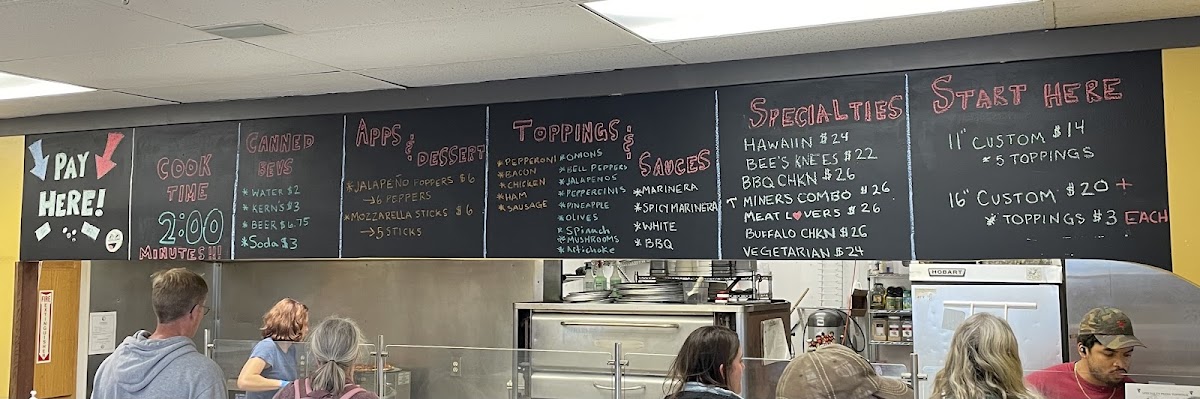 PAY
HERE!
COOK
TIME
2:00
MINUTES!!!
CANNED
BEVS
* WATER $2
* KERN'S $3
* BEER $6.75
* Soda $3
APPS
& DESSERT
* JALAPEÑO POPPERS $6
→ 6 PEPPERS
* MOZZARELLA STICKS $6
→ 5 STICKS
TOPPINGS &
SAUCES
* PEPPERONI
* BACON
* CHICKEN
* HAM
* SAUSAGE
* ONIONS
* BELL PEPPERS
* JALAPEÑOS
* PEPPERCINIS
* PINEAPPLE
* OLIVES
* Spinach
* MUSHROOMS
* Artichoke
* MARINERA
* SPICY MARINERA
* WHITE
* BBQ
SPECIALTIES
HAWAIIN $24
BEE'S KNEES $22
BBQ CHKN $26
↑ MINERS COMBO $26
MEAT L♥VERS $26
BUFFALO CHKN $26
VEGETARIAN $24
START HERE
11" CUSTOM $14
* 5 TOPPINGS
16" CUSTOM $20 +
* TOPPINGS $3 EACH
HOBART
FIRE
EXTINGUISHER